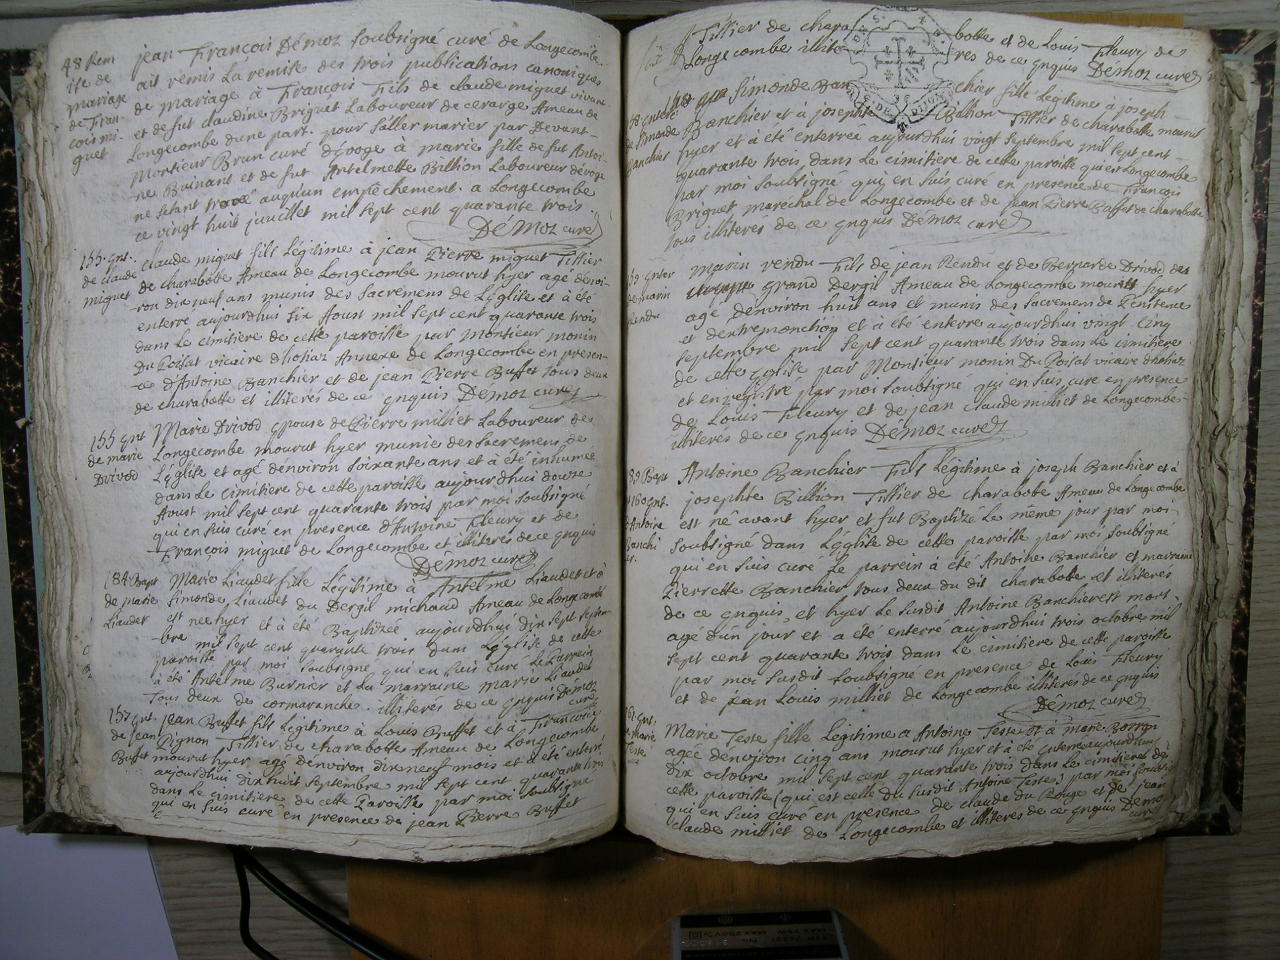 48 Rem
ise de
mariage
de Fran-
cois mi-
guet
jean François Démoz soubsigné curé de Longecombe
ait remis La remise des trois publications canoniques
de mariage à François fils de claude miguet vivant
et de fut claudine Briguet Laboureur de cerarge Ameau de
Longecombe d'une part. pour s'aller marier par Devant
Monsieur Brun curé d'évoge à marie fille de fut Antoi-
ne Buinant et de fut Antelmette Billion Laboureur d'évoge
ne s'étant trové auqu'un empêchement. a Longecombe
ce vingt huit juillet mil sept cent quarante trois
Démoz curé
155. Ent.
de claude
miguet
claude miguet fils Légitime à jean Pierre miguet Tissier
de charabotte Ameau de Longecombe mourut hyer agé denvi-
ron dix neuf ans munis des sacremens de L'église et à été
enterré aujourdhui six Aoust mil sept cent quarante trois
dans Le cimitière de cette paroisse par Monsieur monin
Du Poisat vicaire d'hostiaz Annexe de Longecombe en presen-
ce d'Antoine Banchier et de jean Pierre Buffet tous deux
de charabotte et illiterés de ce enquis Démoz curé
155 Ent
de marie
Drivod
Marie Drivod epouse de Pierre milliet Laboureur de
Longecombe mourut hyer munie des sacremens de
L'église et agé denviron soixante ans et à été inhumée
dans Le cimitière de cette paroisse aujourdhui douze
Aoust mil sept cent quarante trois par moi soubsigné
qui en suis curé en presence d'Antoine Fleury et de
François miguet de Longecombe et illiterés de ce enquis
Démoz curé
184 Bapt
de marie
Liaudet
Marie Liaudet fille Légitime à Antelme Liaudet et à
simonde Liaudet du Dergis michaud Ameau de Longecombe
est née hyer et à été Baptizée aujourdhui dix sept septem-
bre mil sept cent quarante trois dans L'église de cette
paroisse par moi soubsigné qui en suis curé Le Parrein
à été Antelme Burnier et La marraine marie Liaudet
Tous deux de cormaranche illiterés de ce enquis Démoz
curé
157 Ent.
de jean
Buffet
jean Buffet fils Légitime à Louis Buffet et à Françoise
Pignon Tissier de charabotte Ameau de Longecombe
mourut hyer agé denviron dix neuf mois et à été enterré
aujourdhui dix huit septembre mil sept cent quarante trois
dans Le cimitière de cette Paroisse par moi soubsigné
qui en suis curé en presence de jean Pierre Buffet
Tissier de charabotte et de Louis Fleury de
Longecombe illiterés de ce enquis Démoz curé
simonde
Banchier
simonde Banchier fille Légitime à joseph
Banchier et à josephte Billion Tissier de charabotte mourut
hyer et à été enterrée aujourdhui vingt septembre mil sept cent
quarante trois dans Le cimitière de cette paroisse qui est Longecombe
par moi soubsigné qui en suis curé en presence de François
Briguet maréchal de Longecombe et de jean Pierre Buffet de charabotte
Tous illiterés de ce enquis Démoz curé
159 Enter
de marin
Rendu
marin rendu fils de jean Rendu et de Bernarde Drivod des
grand Dergis Ameau de Longecombe mourut hyer
agé denviron huit ans et munis des sacremens de Penitence
et d'extremonction et à été enterré aujourdhui vingt cinq
septembre mil sept cent quarante trois dans Le cimitière
de cette Eglise par Monsieur monin Du Poisat vicaire d'hostiaz
et enregistré par moi soubsigné qui en suis curé en presence
de Louis Fleury et de jean claude milliet de Longecombe
illiterés de ce enquis Démoz curé
189 Bapt
et 160 Ent.
d'Antoine
Banchi
er.
Antoine Banchier Fils Légitime à joseph Banchier et à
josephte Billion Tissier de charabotte Ameau de Longecombe
est né avant hyer et fut Baptizé Le même jour par moi
soubsigné dans L'église de cette paroisse par moi soubsigné
qui en suis curé Le parrein à été Antoine Banchier et marraine
Pierrette Banchier tous deux du dit charabotte et illiterés
de ce enquis, et hyer Le susdit Antoine Banchier est mort
agé d'un jour et a été enterré aujourdhui trois octobre mil
sept cent quarante trois dans Le cimitière de cette paroisse
par moi susdit soubsigné en presence de Louis Fleury
et de jean Louis milliet de Longecombe illiterés de ce enquis
Démoz curé
161 Ent.
de Marie
Teste
Marie Teste fille Légitime a Antoine Teste et à marie Borron
agée denviron cinq ans mourut hyer et à été enterrée aujourdhui
dix octobre mil sept cent quarante trois dans Le cimitière de
cette paroisse (qui est celle du susdit Antoine Teste) par moi soubsigné
qui en suis curé en presence de claude du Rouge et de jean
claude milliet de Longecombe et illiterés de ce enquis Démoz
curé